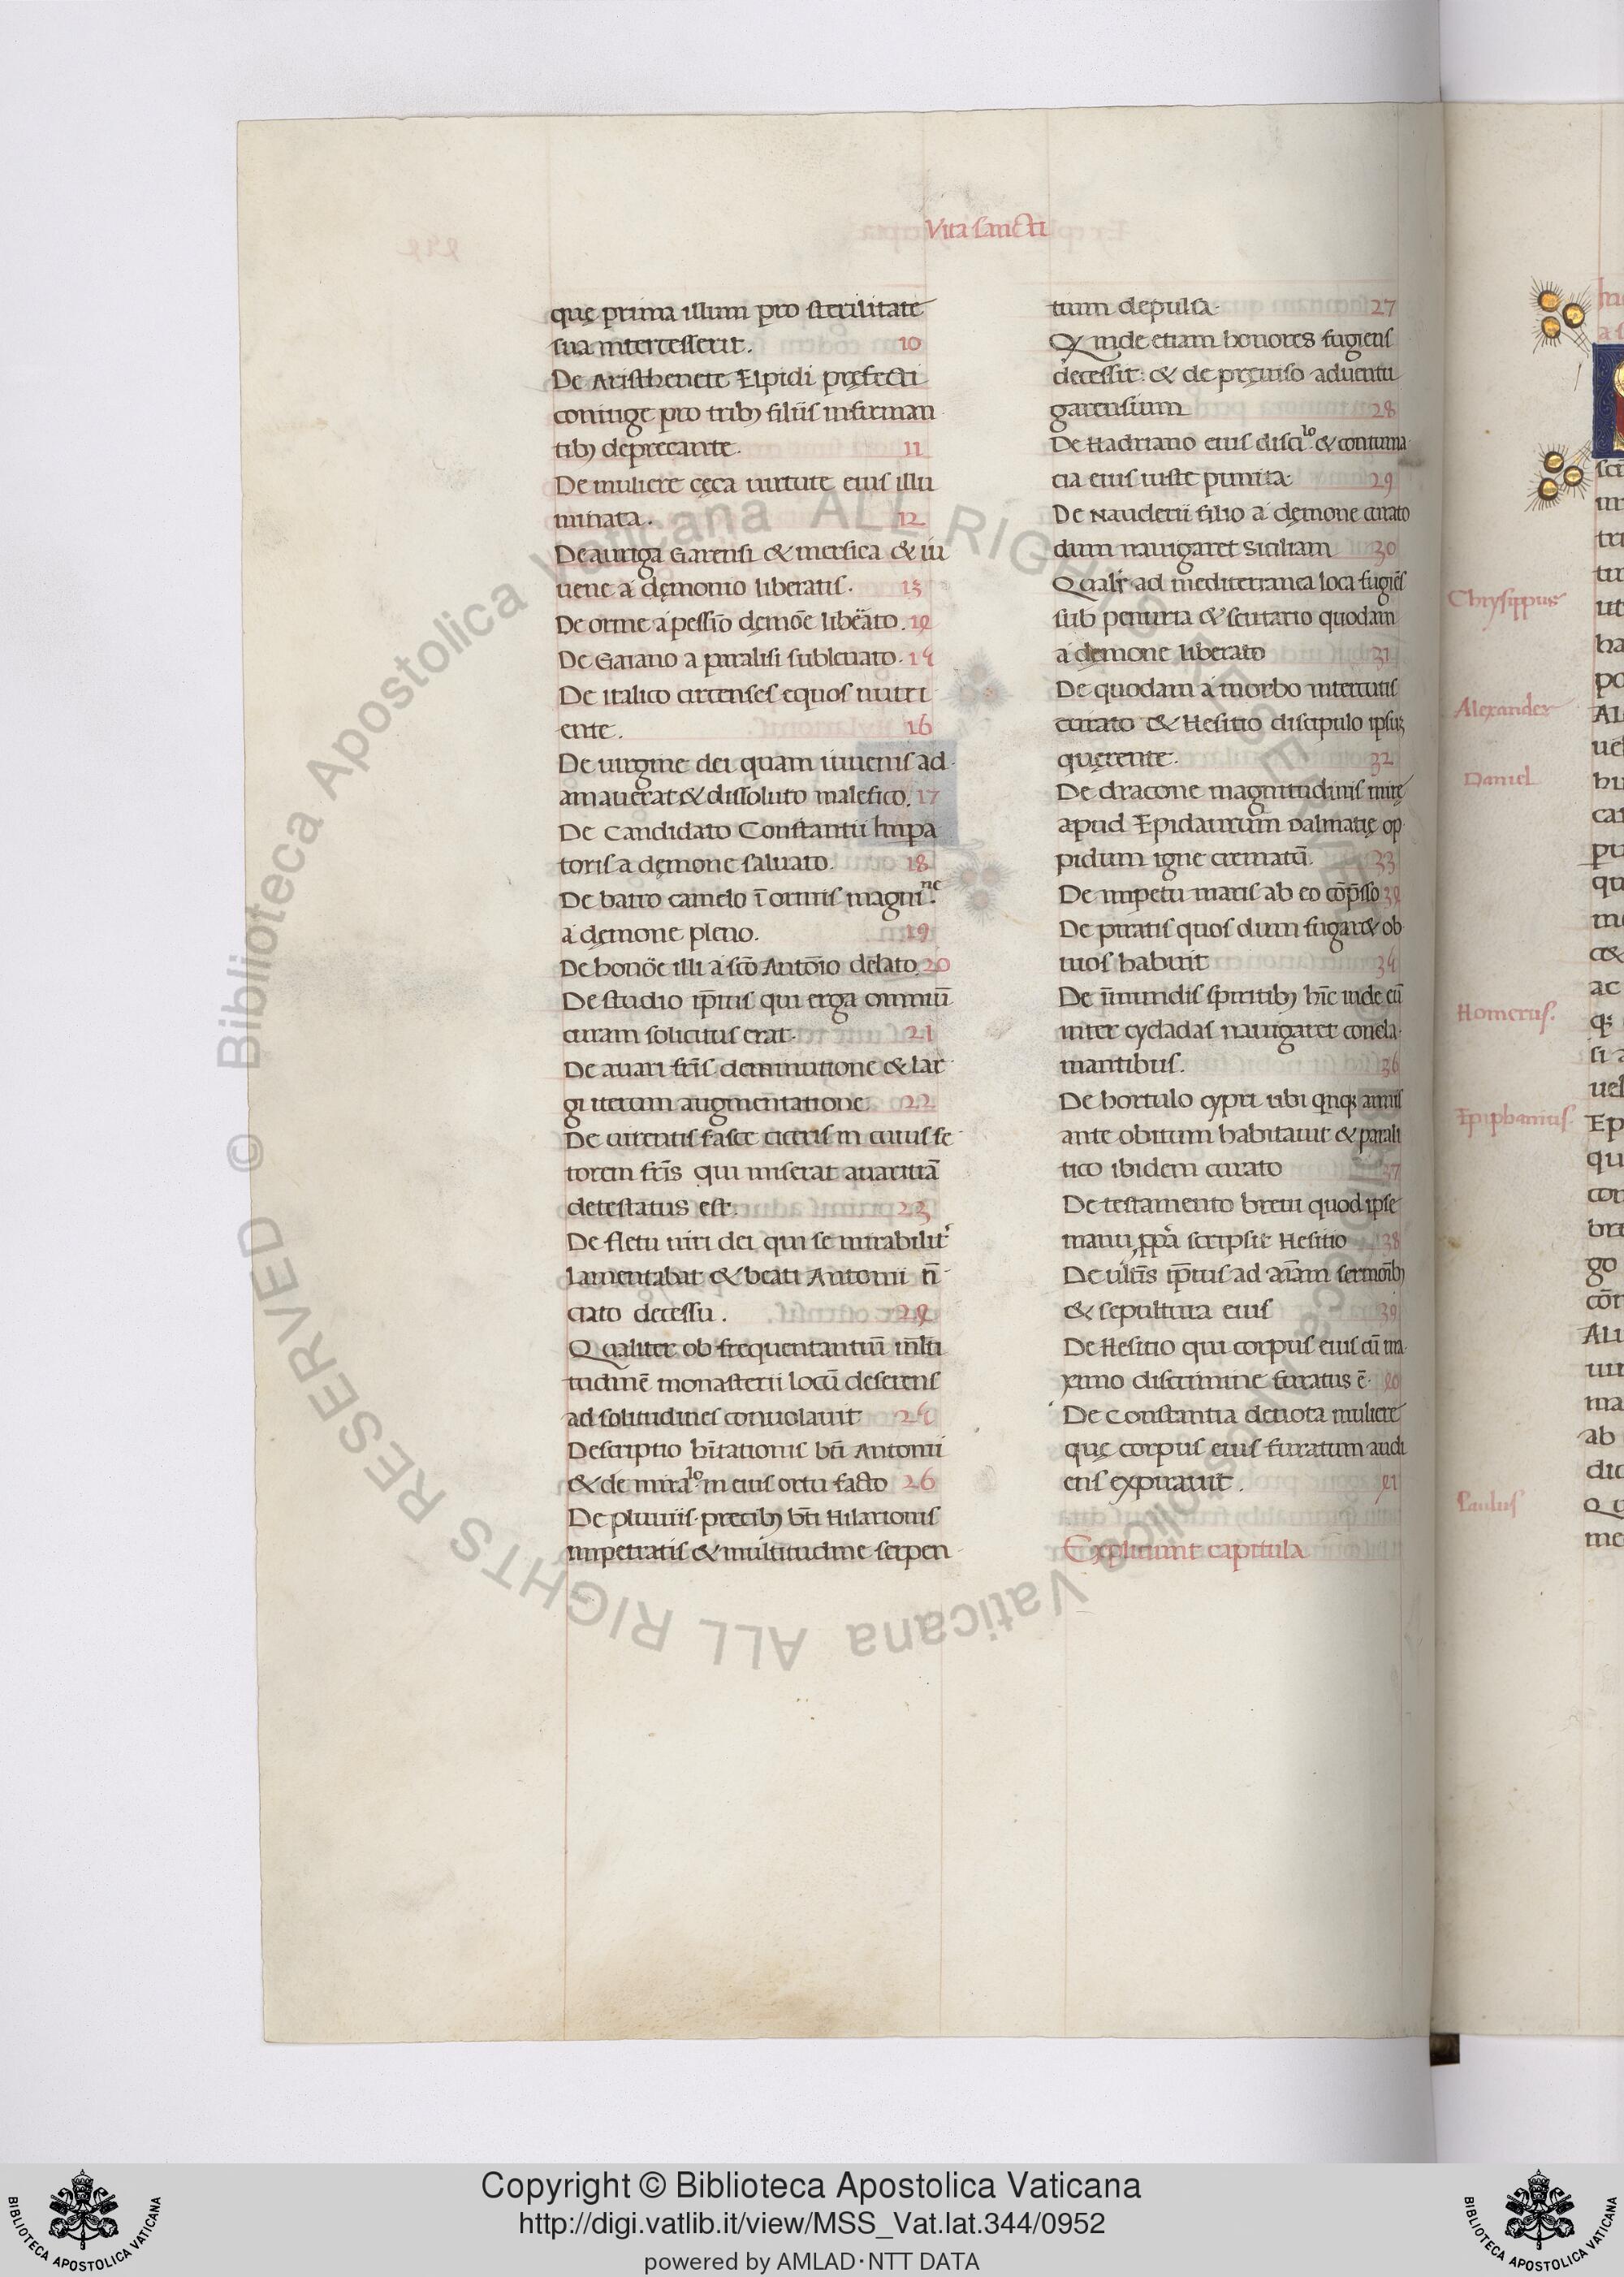 Vita sancti
quę prima illum pro sterilitate
sua intercesserit. 10
De Aristhenete Elpidi pręfecti
coniuge pro tribꝫ filiis infirman
tibꝫ deprecante. 11
De muliere cęca uirtute eius illu
minata. 12
De auriga Garensi & mersica & iu
uene a dęmonio liberatis. 13
De orme a pessīo dęmōe libēato. 14
De Gaiano a paralisi subleuato. 15
De italico circenses equos nutri
ente. 16
De uirgine dei quam iuuenis ad
amauerat & dissoluto malefico. 17
De Candidato Constantii Impa
toris a dęmone saluato. 18
a dęmone pleno. 19
De honōe illi a sc̄o Antōio delato 20
De studio ip̄ius qui erga omniū
curam solicitus erat. 21
De auari fr̄is deminutione & lar
gi uterum augmentatione 22
De uirentis fasce ciceris in cuius fe
torem fr̄is qui miserat auaritiā
detestatus est. 23
De fletu uiri dei qui se mirabilit̉
lamentabat & beati Antonii n̄
ciato decessu. 24
Qualiter ob frequentantiū m̄lti
tudinē monasterii locū deserens
ad solitudines conuolauit 25
Descriptio hītationis bt̄i Antonii
& de mira.lo in eius ortu facto 26
De pluuiis precibꝫ bt̄i Hilarionis
impetratis & multitudine serpen
tium depulsa. 27
Q inde etiam honores fugiens
decessit: & de pręuiso aduentu
garensium 28
De Hadriano eius disci.lo & contuma
cia eius iuste punita. 29
De Nauclerii filio a dęmone curato
dum nauigaret Siciliam 30
Qualr̄ ad mediterranea loca fugiēs
sub penuria & scutario quodam
a dęmone liberato 31
De quodam a morbo intercutis
curato & Hesitio discipulo ipsuꝫ
quęrente. 32
De dracone magnitudinis mirę
apud Epidaurum Dalmatię op
pidum igne crematū. 33
De impetu maris ab eo cōp̄sso 34
De piratis quos dum fugaret ob
uios habuit 35
De īmundis spiritibꝫ hīc inde eū
inter cycladas nauigaret concla
mantibus. 36
De hortulo cypri ubi qnqꝫ annis
ante obitum habitauit & parali
tico ibidem curato 37
De testamento breui quod ipse
manu ꝓpā scripsit Hesitio 38
De ultīs ip̄ius ad aīam sermōibꝫ
& sepultura eius 39
De Hesitio qui corpus eius cū ma
ximo discrimine furatus ē. 40
De Constantia deuota muliere
quę corpus eius furatum audi
ens expirauit. 41
Expliciunt capitula
Chrysippus
Alexander
Daniel
Homerus.
Epiphanius.
Paulus
Copyright © Biblioteca Apostolica Vaticana
http://digi.vatlib.it/view/MSS_Vat.lat.344/0952
powered by AMLAD・NTT DATA
BIBLIOTECA APOSTOLICA VATICANA
BIBLIOTECA APOSTOLICA VATICANA
© Biblioteca Apostolica Vaticana ALL RIGHTS RESERVED
© Biblioteca Apostolica Vaticana ALL RIGHTS RESERVED